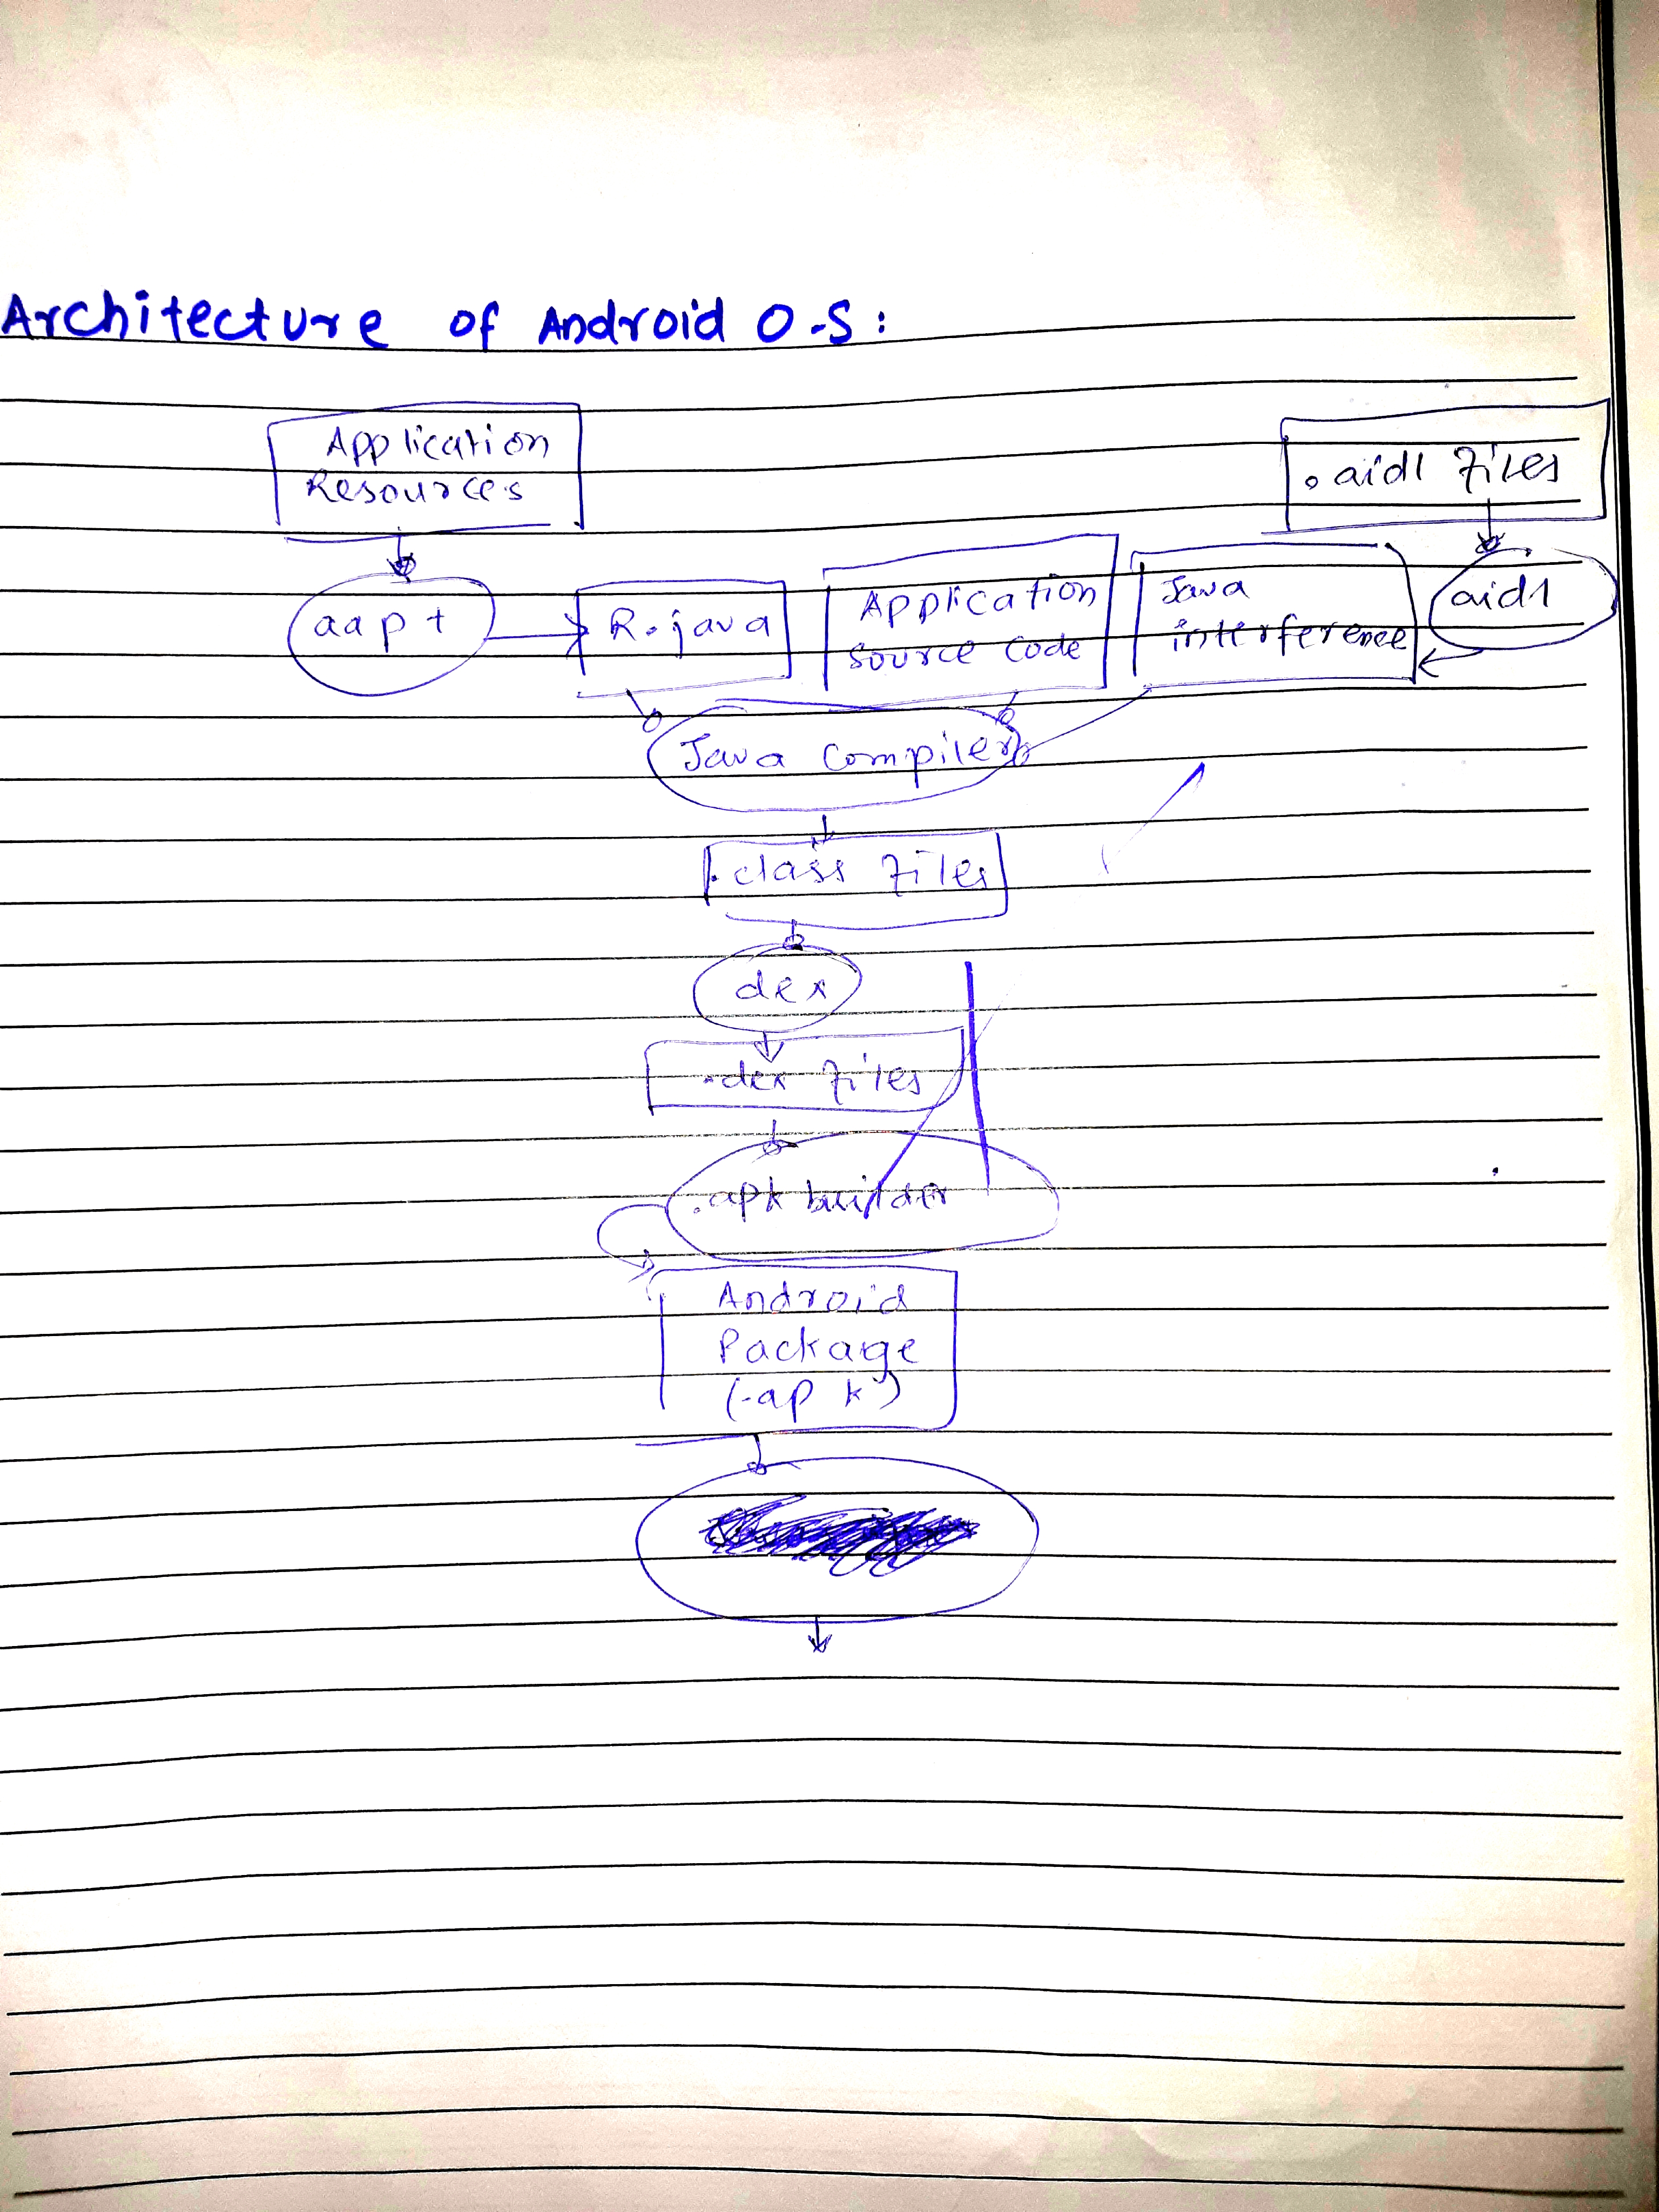 Architecture of Android O.S :
Application
Resources
.aidl files
aapt
R.java
Application
source code
Java
interference
aidl
Java compiler
.class files
dex
.dex files
.apk builder
Android
Package
(.apk)